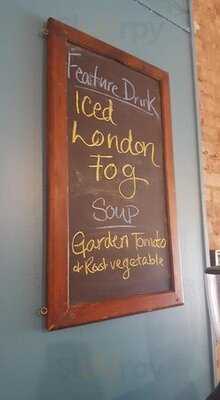 Feature Drink
Iced
London
Fog
Soup
Garden Tomato
& Roast vegetable